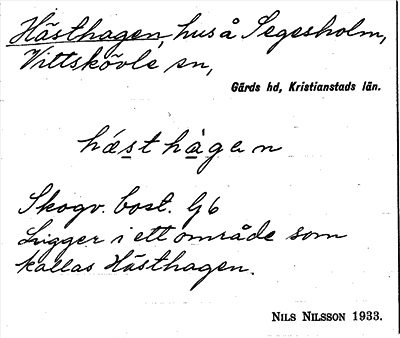 Hästhagen, hus å Segesholm,
Vittskövle sn,
Gärds hd, Kristianstads län.
hǽsthàgen
Skogv. bost. G6
Ligger i ett område som
kallas Hästhagen.
NILS NILSSON 1933.